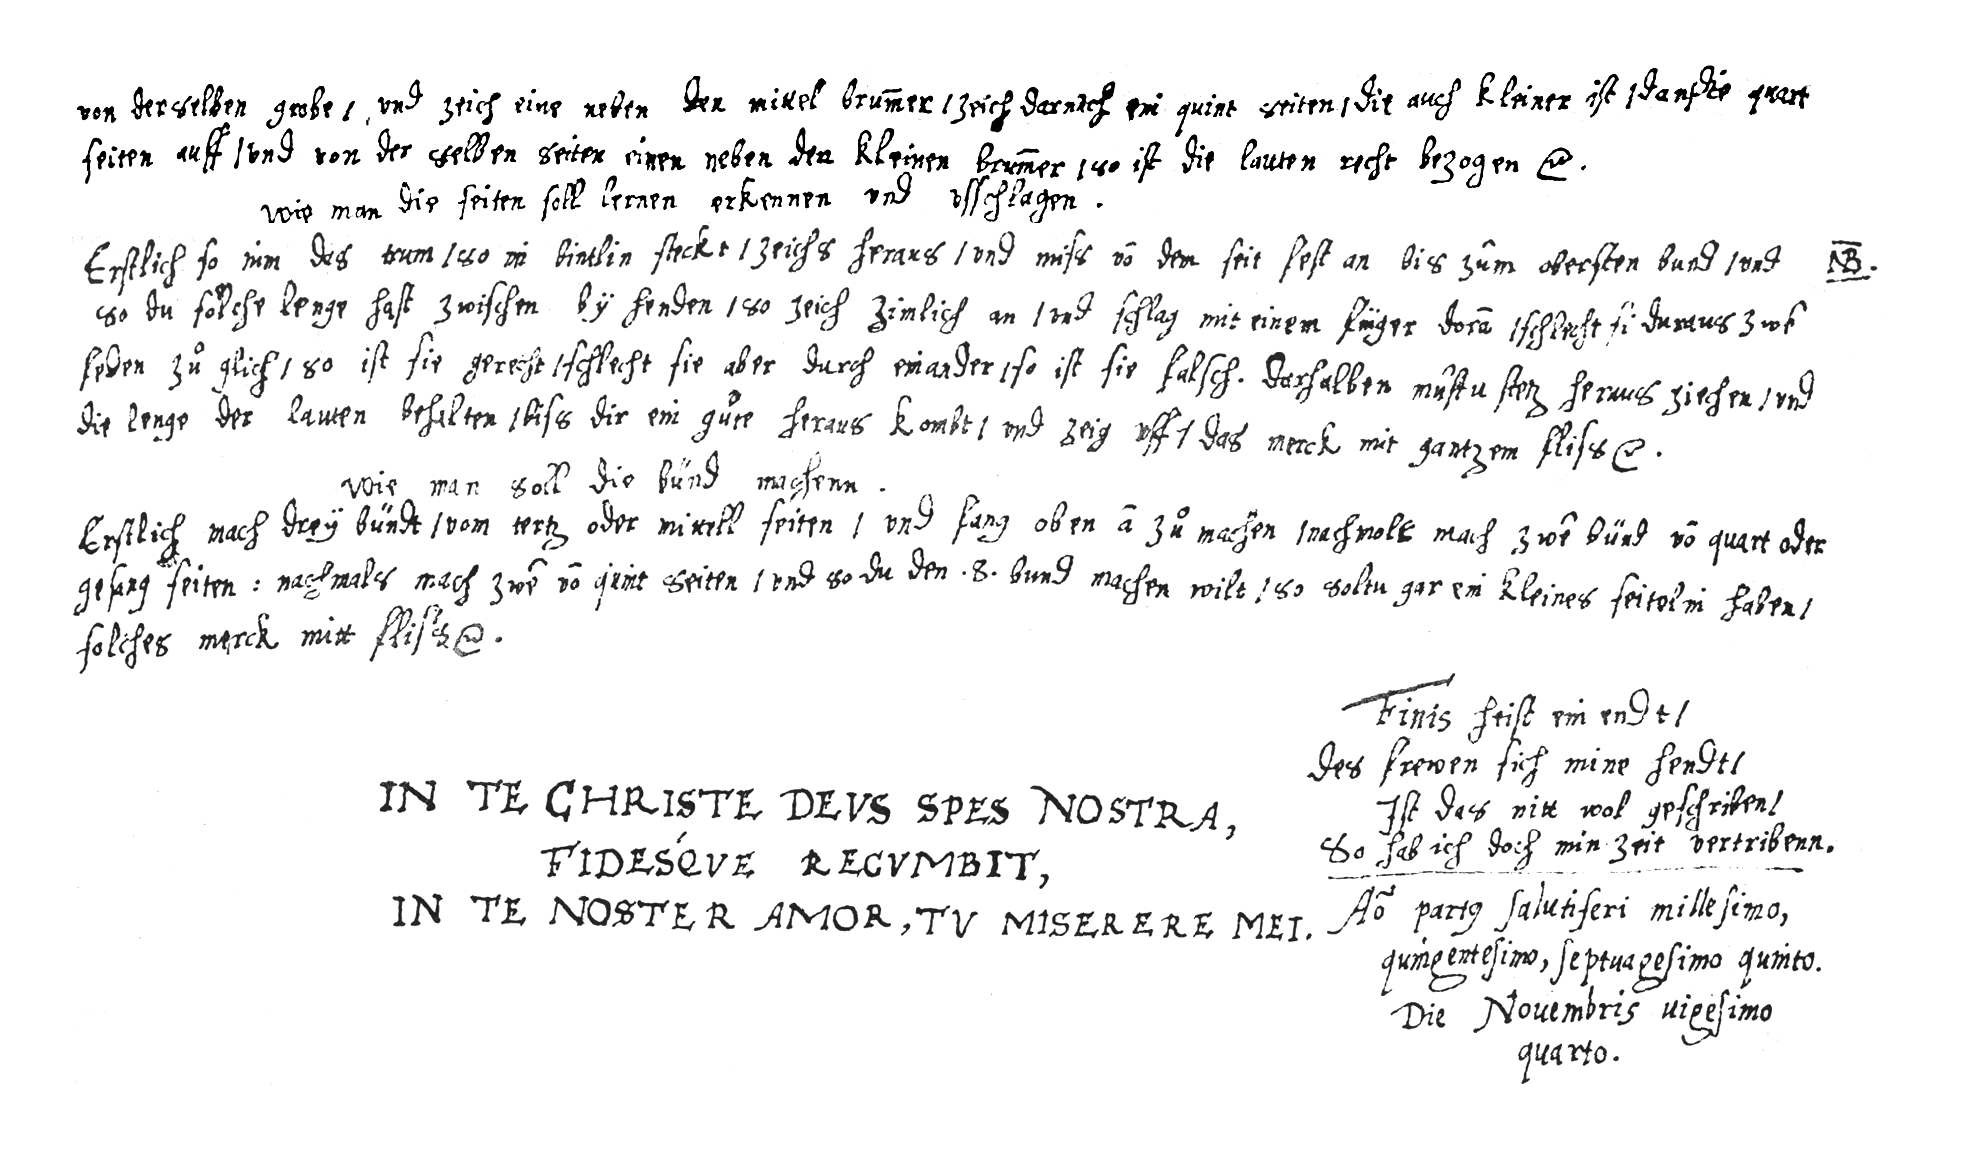 von derselben grobe / vnd zeich eine neben den mittel brum̄er / zeich darnach ein quint seiten / die auch kleiner ist / dan die quart
seiten auff / vnd von der selben seiten einen neben den kleinen brum̄er / so ist die lauten recht bezogen
wie man die seiten soll lernen erkennen vnd vffschlagen .
Erstlich so nim das trum / so in bintlin steckt / zeichs heraus / vnd miss võ dem seit fest an bis zům obersten bund / vnd NB.
so du solche lenge hast zwischen bÿ henden / so zeich zimlich an / vnd schlag mit einem finger dorã / schlecht si duraus zwẽ
feden zů glich / so ist sie gerecht / schlecht sie aber durch einander / so ist sie falsch. Darhalben můstu stetz heraus ziehen / vnd
die lenge der lauten behalten / biss dir ein gůte heraus kombt / vnd zeig vff / das merck mit gantzem fliss
wie man soll die bünd machenn .
Erstlich mach dreÿ bündt / vom tertz oder mittell seiten / vnd fang oben ã zů machen / nachmols mach zwẽ bünd võ quart oder
gesang seiten : nachmals mach zwẽ võ quint seiten / vnd so du den .8. bund machen wilt / so soltu gar ein kleines seitelin haben /
solches merck mitt fliss
Finis heist ein endt /
des frewen sich mine hendt /
Ist das nitt wol geschriben /
So hab ich doch min zeit vertribenn.
IN TE CHRISTE DEVS SPES NOSTRA,
FIDESQ́VE RECVMBIT,
IN TE NOSTER AMOR, TV MISERERE MEI.
Aõ partꝰ salutiferi millesimo,
quingentesimo, septuagesimo quinto.
Die Nouembris uigesimo
quarto.